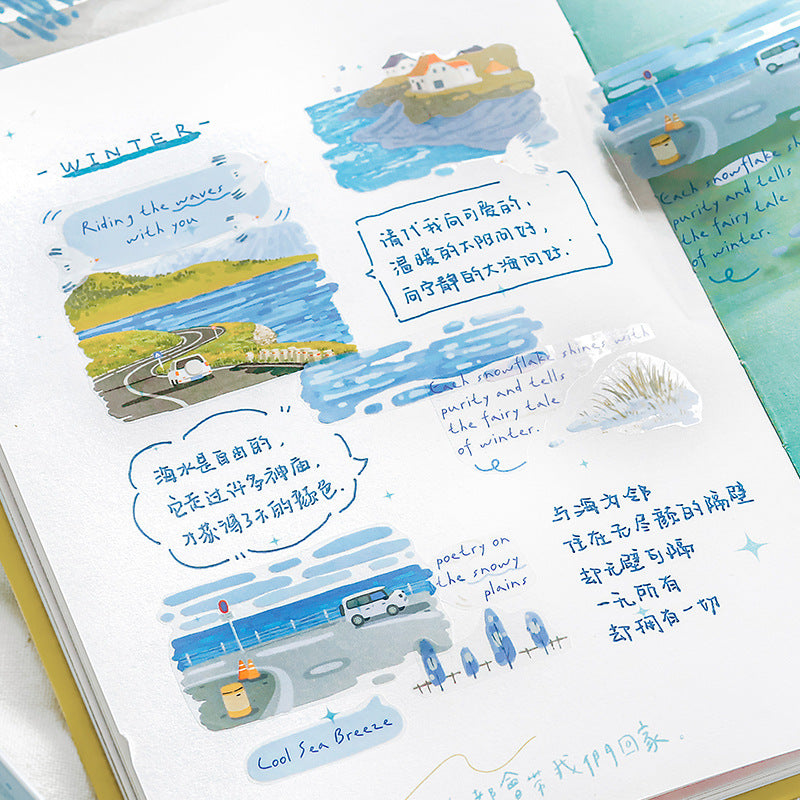 - WINTER -
Riding the waves
with you
请代我向可爱的，
温暖的太阳问好，
向宁静的大海问好；
Each snowflake shines with
purity and tells
the fairy tale
of winter.
海水是自由的，
它走过许多神庙，
才获得了不的颜色.
poetry on
the snowy
plains
与海为邻
住在无尽颜的隔壁
却无壁可隔
一无所有
却拥有一切
Cool Sea Breeze
都會带我們回家。
Each snowflake sh
purity and tells
the fairy tale
of winter.